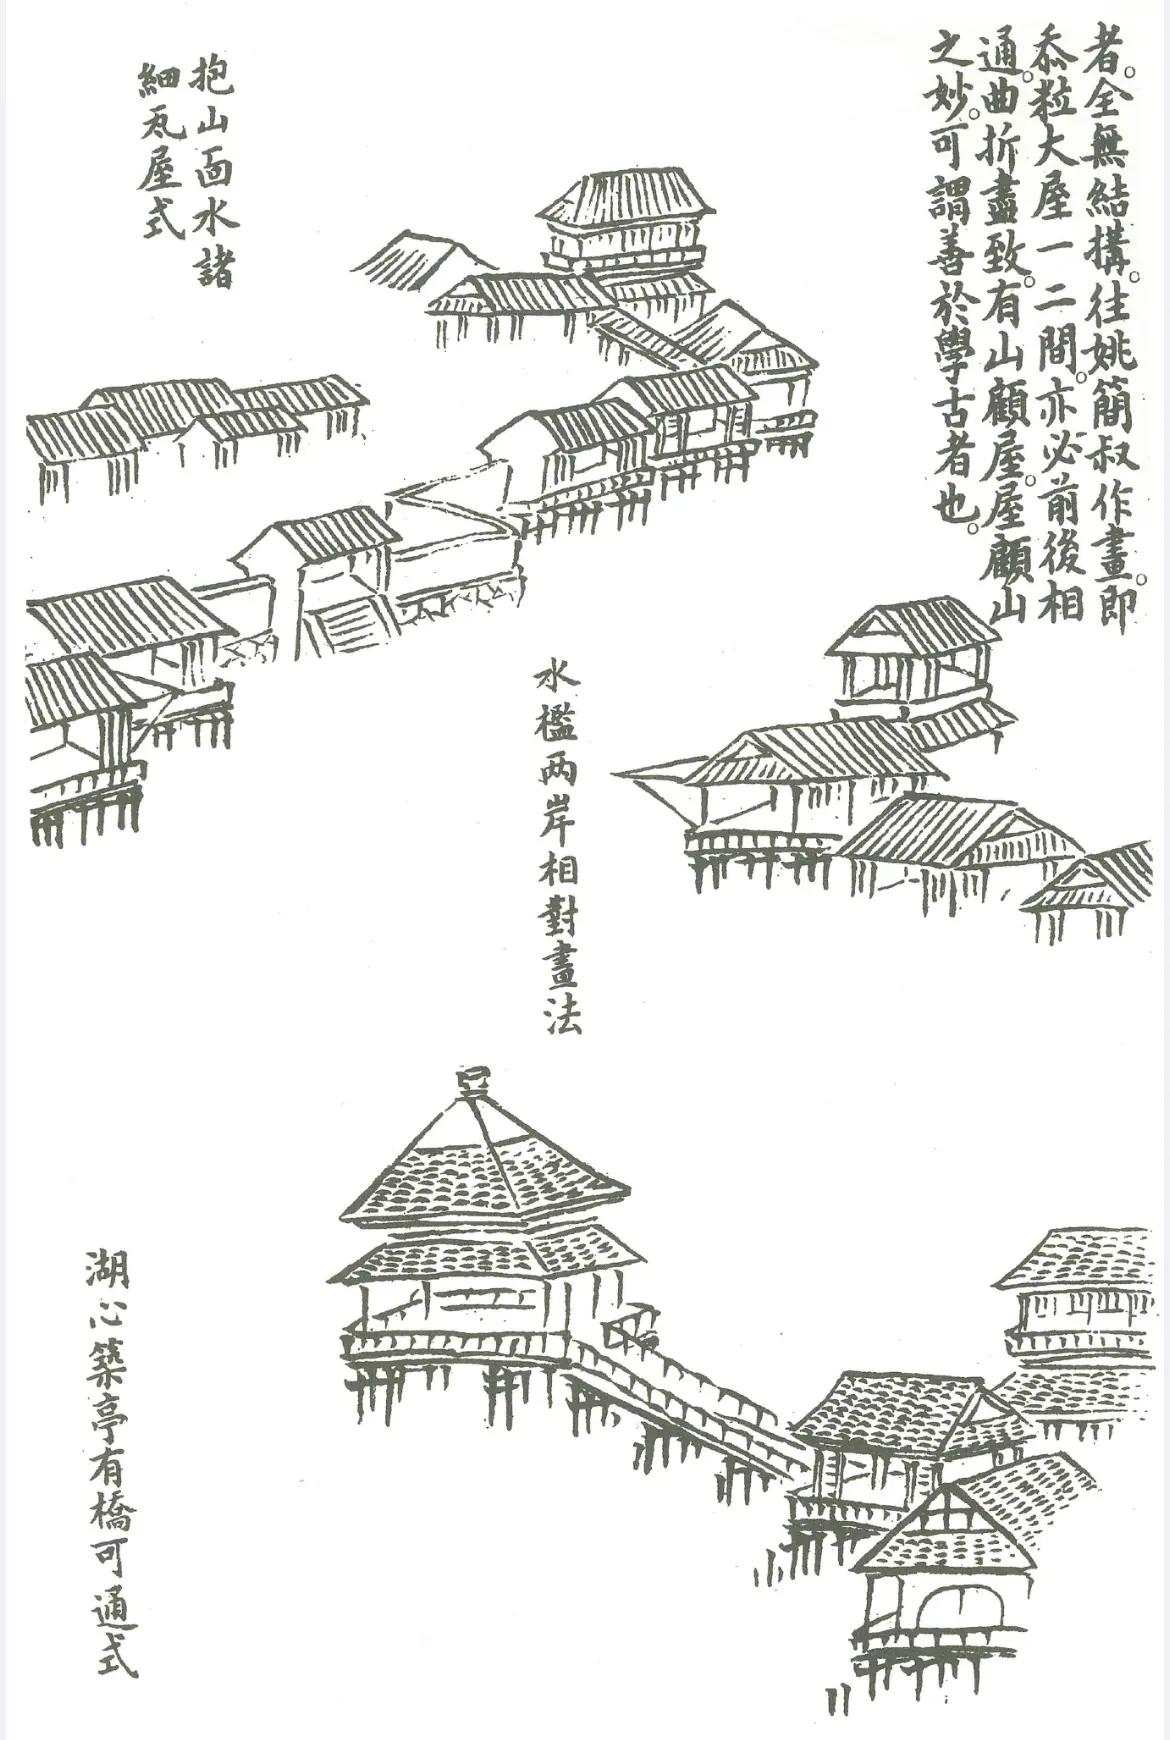 者。全無結搆。往姚簡叔作畫。即
黍粒大屋一二間。亦必前後相
通。曲折盡致。有山顧屋。屋顧山
之妙。可謂善於學古者也。
抱山面水諸
細瓦屋式
水檻两岸相對畫法
湖心築亭有橋可通式